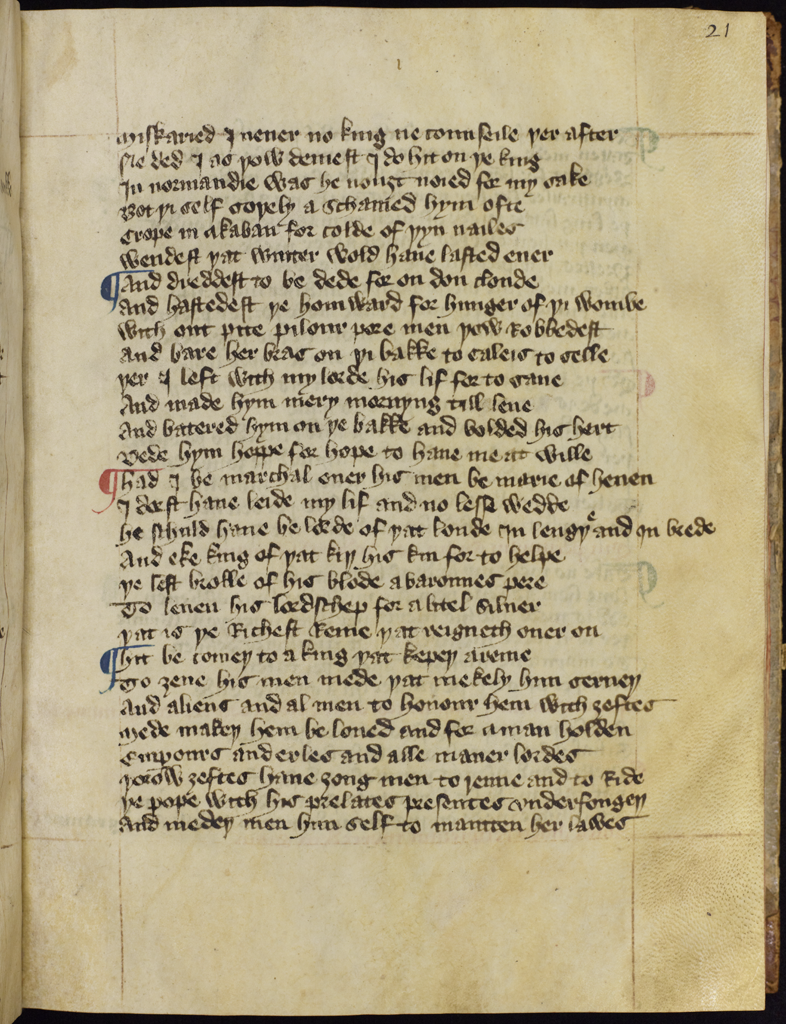 21
Miskaried I neuer no king ne counseile þer after
Ne ded I as þow demest I do hit on þe king
In normandie was he nouȝt noied for my sake
Bot þi self soþely a schamed hym ofte
Crope in a kaban for colde of þyn nailes
Wendest þat wynter wold haue lasted euer
¶And dreddest to be dede for on don cloude
And hastedest þe homward for hunger of þi wombe
With out pite pilour pore men þow Robbedest
And bare her bras on þi bakke to caleis to selle
þer I left with my lorde his lif for to saue
And made hym mery mornyng till leue
And batered hym on þe bakke and bolded his hert
Dede hym hoppe for hope to haue me at wille
¶had I be marchal euer his men be marie of heuen
I dorst haue leide my lif and no lesse wedde
he schuld haue be lorde of þat londe In lengþe and in brede
And eke king of þat kiþ his kin for to helpe
þe lest brolle of his blode a barounes pere
To leuen his lordschep for a litel siluer
þat is þe Richest Reme þat reigneth ouer on
¶hit be comeþ to a king þat kepeþ a reme
To ȝeue his men mede þat mekely him serueþ
And aliens and al men to honour hem with ȝeftes
Mede makeþ hem be loued and for a man holden
Empours and erles and alle maner lordes
þorow ȝeftes haue ȝong men to renne and to Ride
þe pope with his prelates presentes vnderfongeþ
And medeþ men him self to mainten her lawes